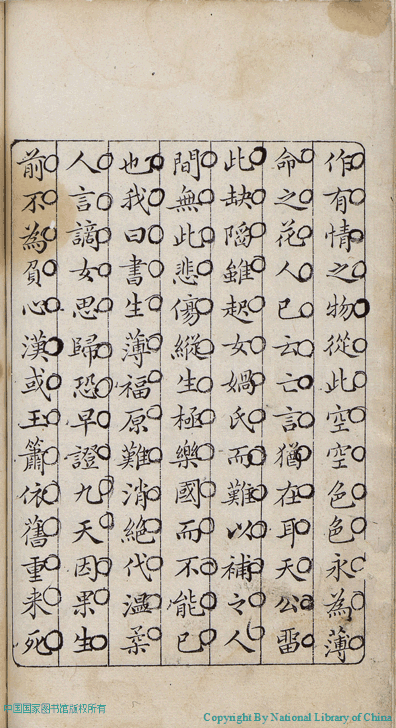 作有情之物從此空空色色永為薄
命之花人已云亡言猶在耳天公畱
此缺陷雖起女媧氏而難以補之人
間無此悲傷縱生極樂國而不能已
也我曰書生薄福原難消絕代溫柔
人言謫女思歸恐早證九天因果生
前不為負心漢或玉簫依舊重来死
中国国家图书馆版权所有
Copyright By National Library of China